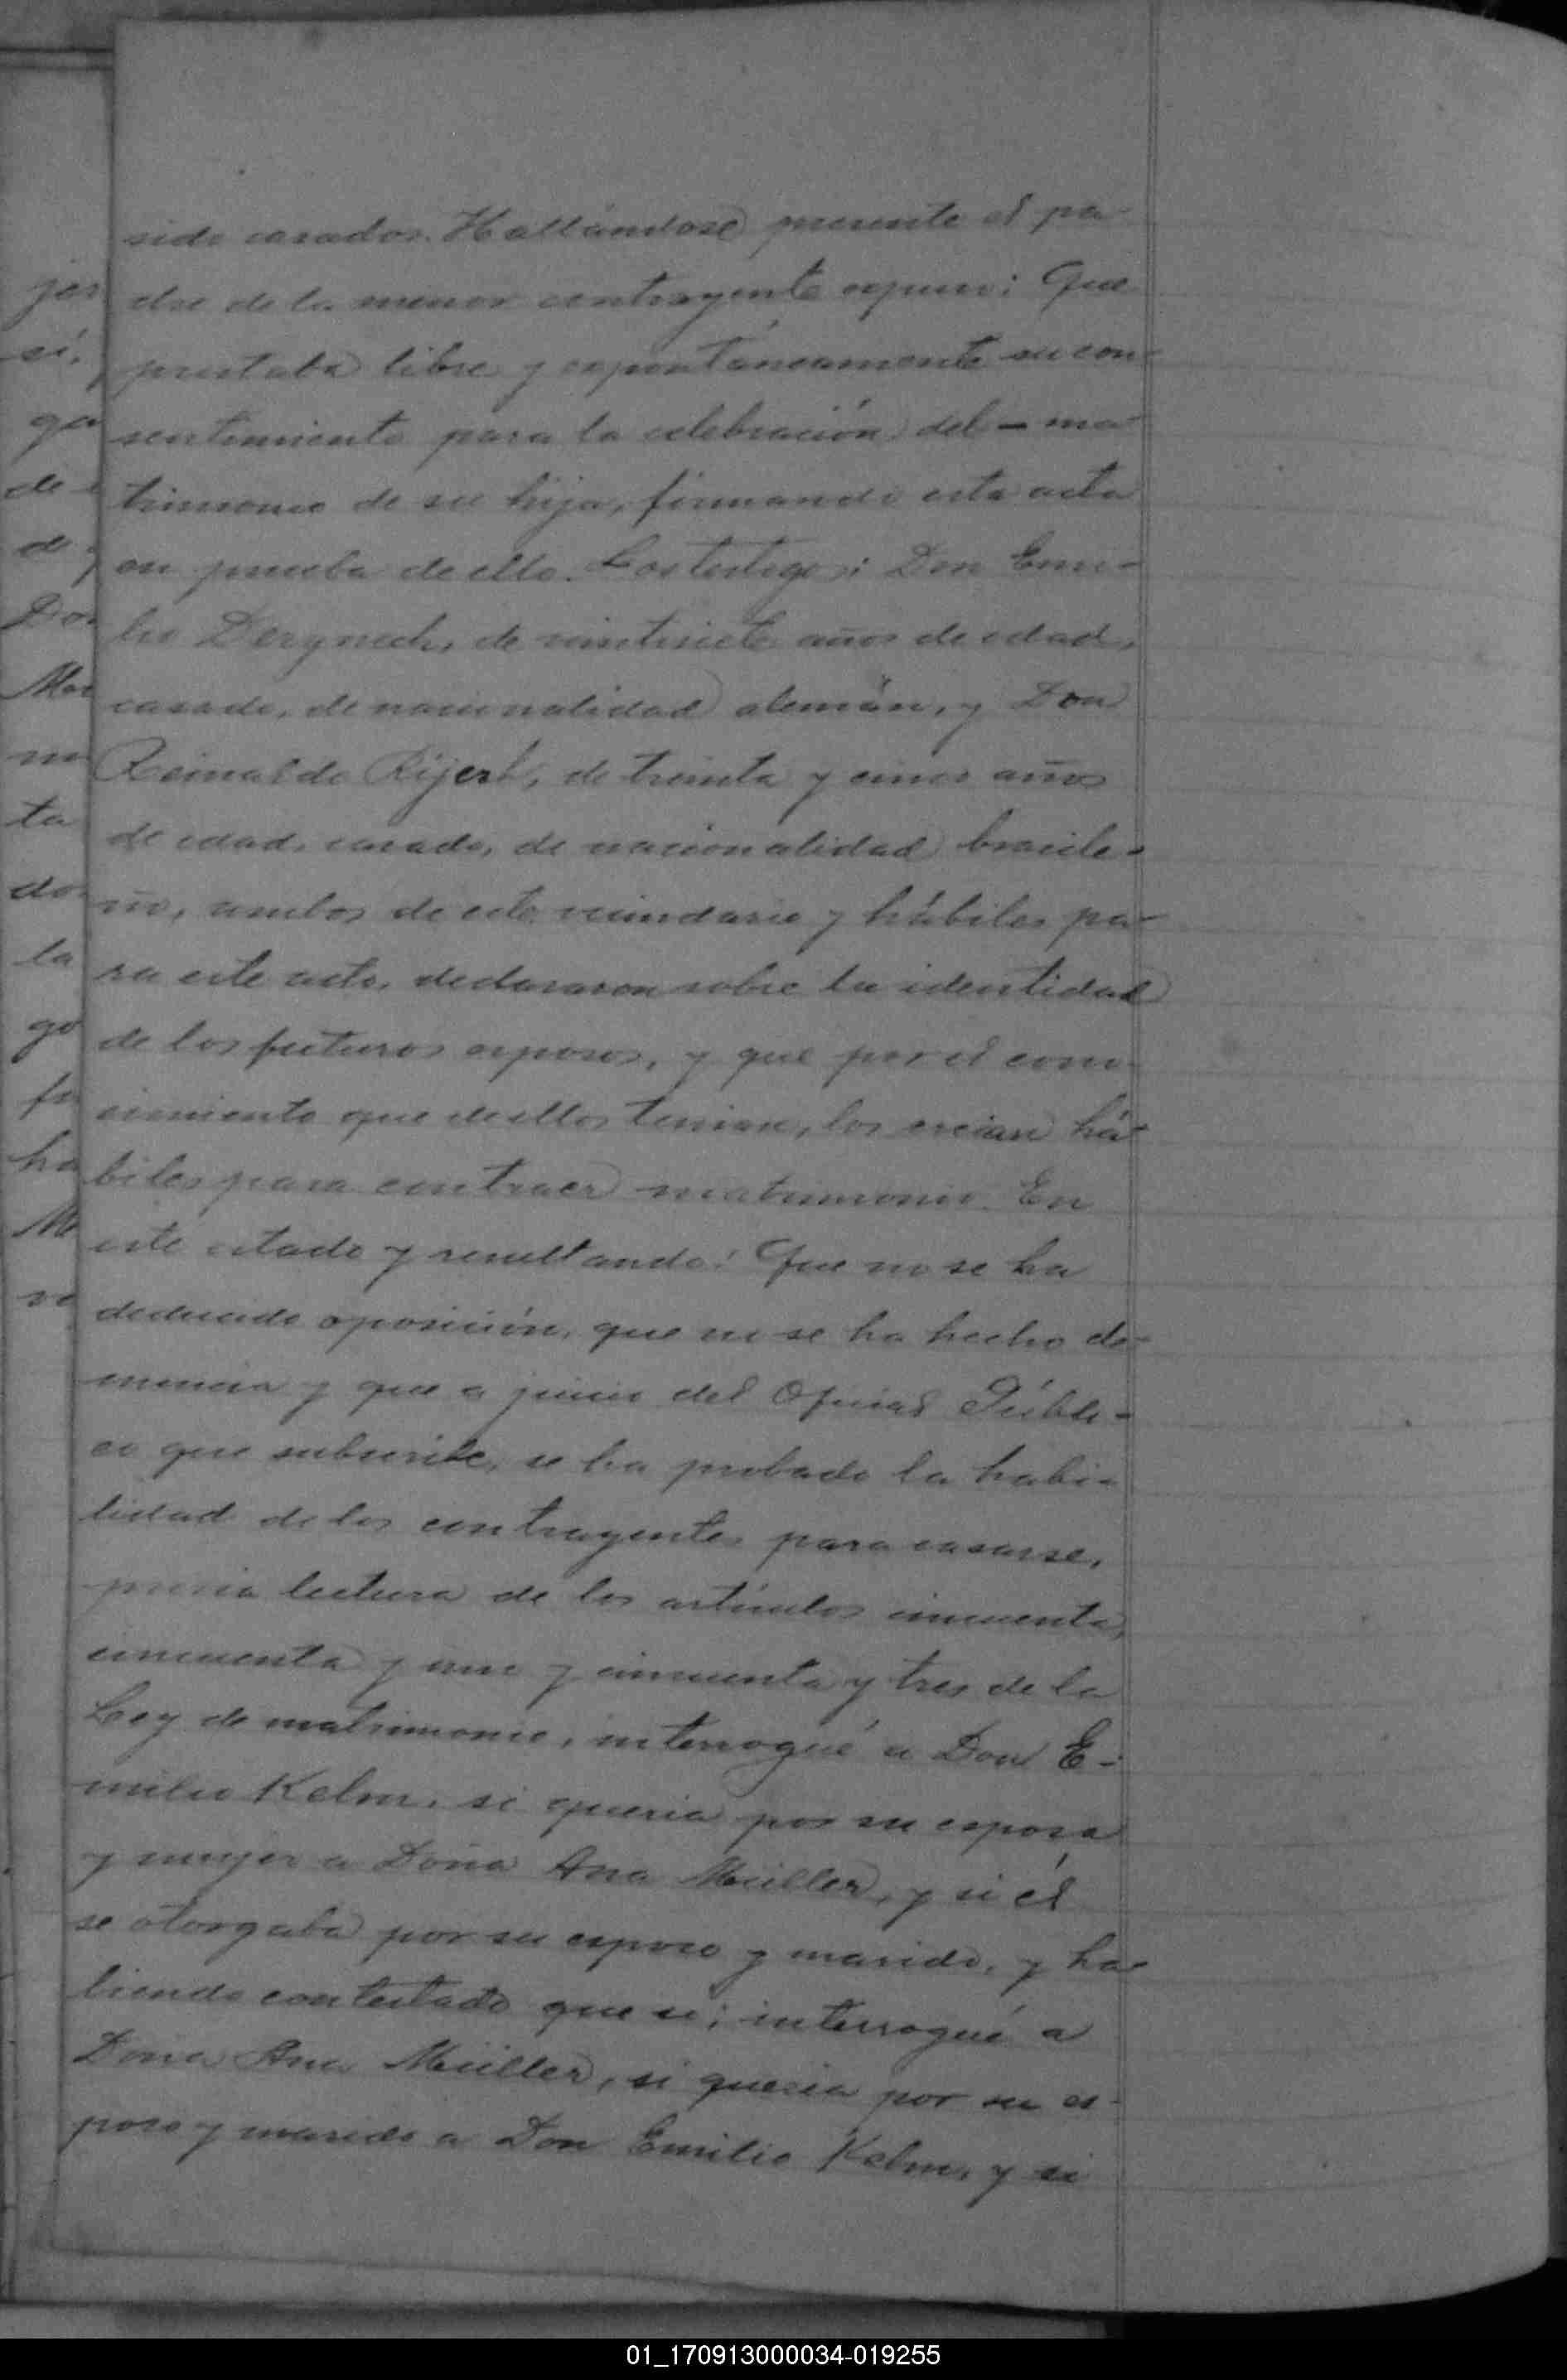 sido casados. Hallándose presente el pa-
dre de la menor contrayente expuso: Que
prestaba libre y espontáneamente su con-
sentimiento para la celebración del - ma-
trimonio de su hija, firmando esta acta
en prueba de ello. Los testigos: Don Emi-
lio de veintisiete años de edad,
casado, de nacionalidad alemán, y Don
Reinaldo Rijert, de treinta y cinco años
de edad, casado, de nacionalidad brasile-
ño, ambos de este vecindario y hábiles pa-
ra este acto, declararon sobre la identidad
de los futuros esposos, y que por el cono-
cimiento que de ellos tenian, los creian há-
biles para contraer matrimonio. En
este estado y resultando: Que no se ha
deducido oposición, que no se ha hecho de-
nuncia y que a juicio del Oficial Públi-
co que subscribe, se ha probado la habi-
lidad de los contrayentes para casarse,
previa lectura de los artículos cincuenta,
cincuenta y uno y cincuenta y tres de la
Ley de matrimonio, interrogué a Don E-
milio Kelm, si queria por su esposa
y mujer a Doña Ana Müller, y si él
se otorgaba por su esposo y marido, y ha-
biendo contestado que si; interrogué a
Doña Ana Müller, si queria por su es-
poso y marido a Don Emilio Kelm, y si
01_170913000034-019255